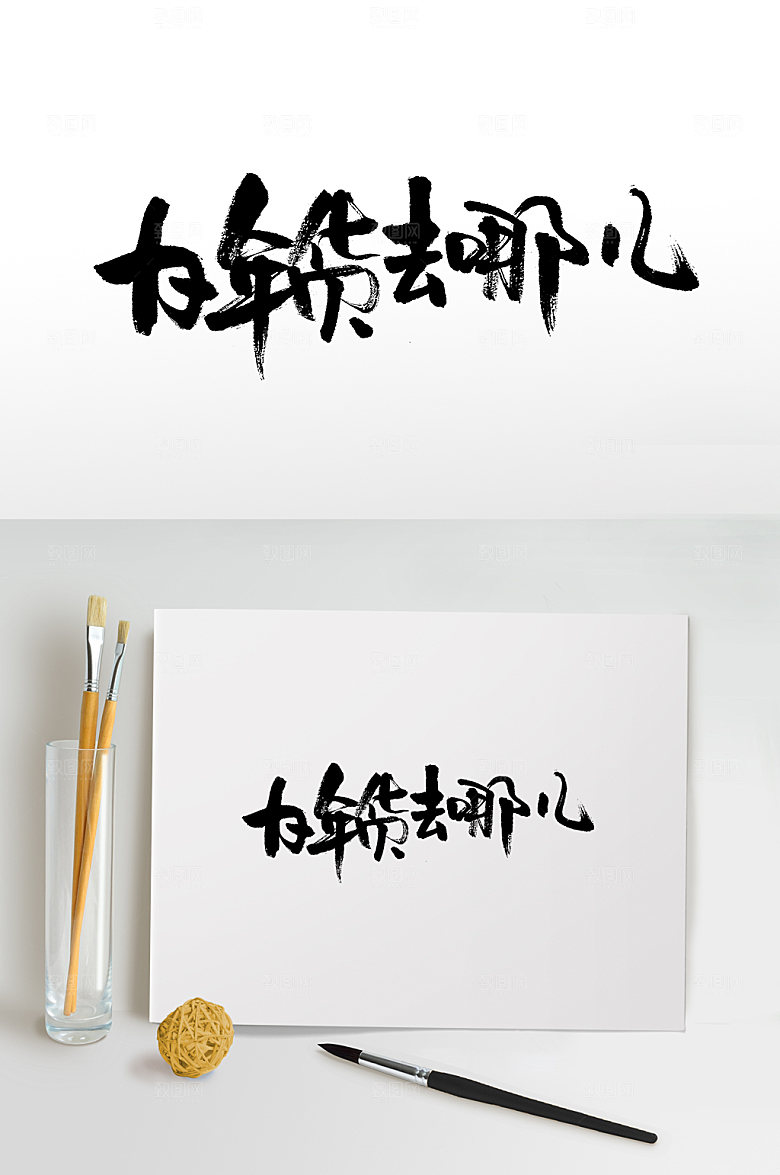 办年货去哪儿
办年货去哪儿